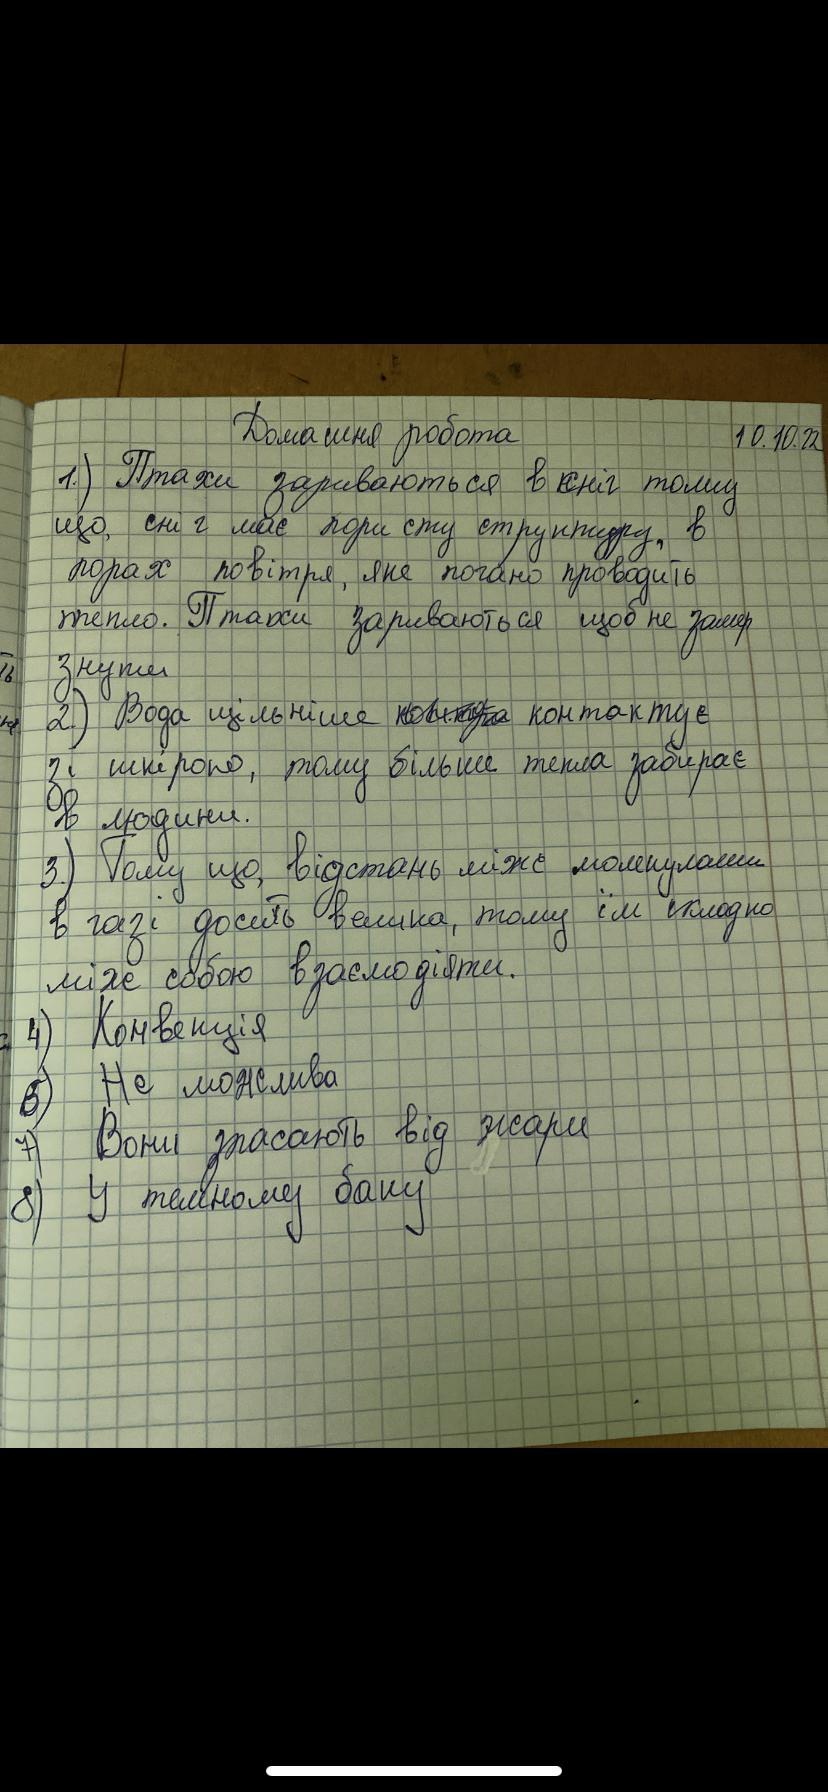 Домашня робота 10.10.22
1.) Птахи зариваються в сніг тому
що, сніг має пористу структуру, в
порах повітря, яке погано проводить
тепло. Птахи зариваються щоб не замер
знути
2.) Вода щільніше контактує
зі шкірою, тому більше тепла забирає
в людини.
3.) Тому що, відстань між молекулами
в газі досить велика, тому їм складно
між собою взаємодіяти.
4) Конвенція
6) Не можлива
7) Вони спасають від жари
8) У темному баку